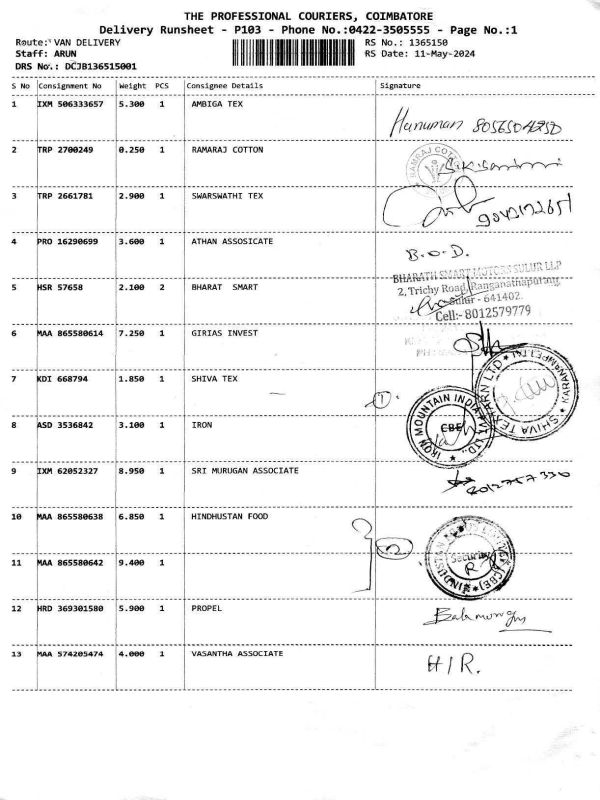 THE PROFESSIONAL COURIERS, COIMBATORE
Delivery Runsheet - P103 - Phone No.:0422-3505555 - Page No.:1
Route: VAN DELIVERY RS No.: 1365150
Staff: ARUN RS Date: 11-May-2024
DRS No.: DCJB136515001
S No Consignment No Weight PCS Consignee Details Signature
1 IXM 506333657 5.300 1 AMBIGA TEX
Hanuman 8056504250
2 TRP 2700249 0.250 1 RAMARAJ COTTON
RAMRAJ COTTON
3 TRP 2661781 2.900 1 SWARSWATHI TEX
9042122651
4 PRO 16290699 3.600 1 ATHAN ASSOSICATE
B.O.D.
5 HSR 57658 2.100 2 BHARAT SMART
BHARATH SMART MOTORS SULUR LLP
2, Trichy Road, Ranganathapuram,
Sulur - 641402.
Cell:- 8012579779
6 MAA 865580614 7.250 1 GIRIAS INVEST
7 KDI 668794 1.850 1 SHIVA TEX
1.
SHIVA TEXYARN LTD KARANAMPETTAI
8 ASD 3536842 3.100 1 IRON
IRON MOUNTAIN INDIA PVT LTD.,
CBE
9 IXM 62052327 8.950 1 SRI MURUGAN ASSOCIATE
10 MAA 865580638 6.850 1 HINDHUSTAN FOOD
2
Security
11 MAA 865580642 9.400 1
12 HRD 369301580 5.900 1 PROPEL
13 MAA 574205474 4.000 1 VASANTHA ASSOCIATE
HIR.